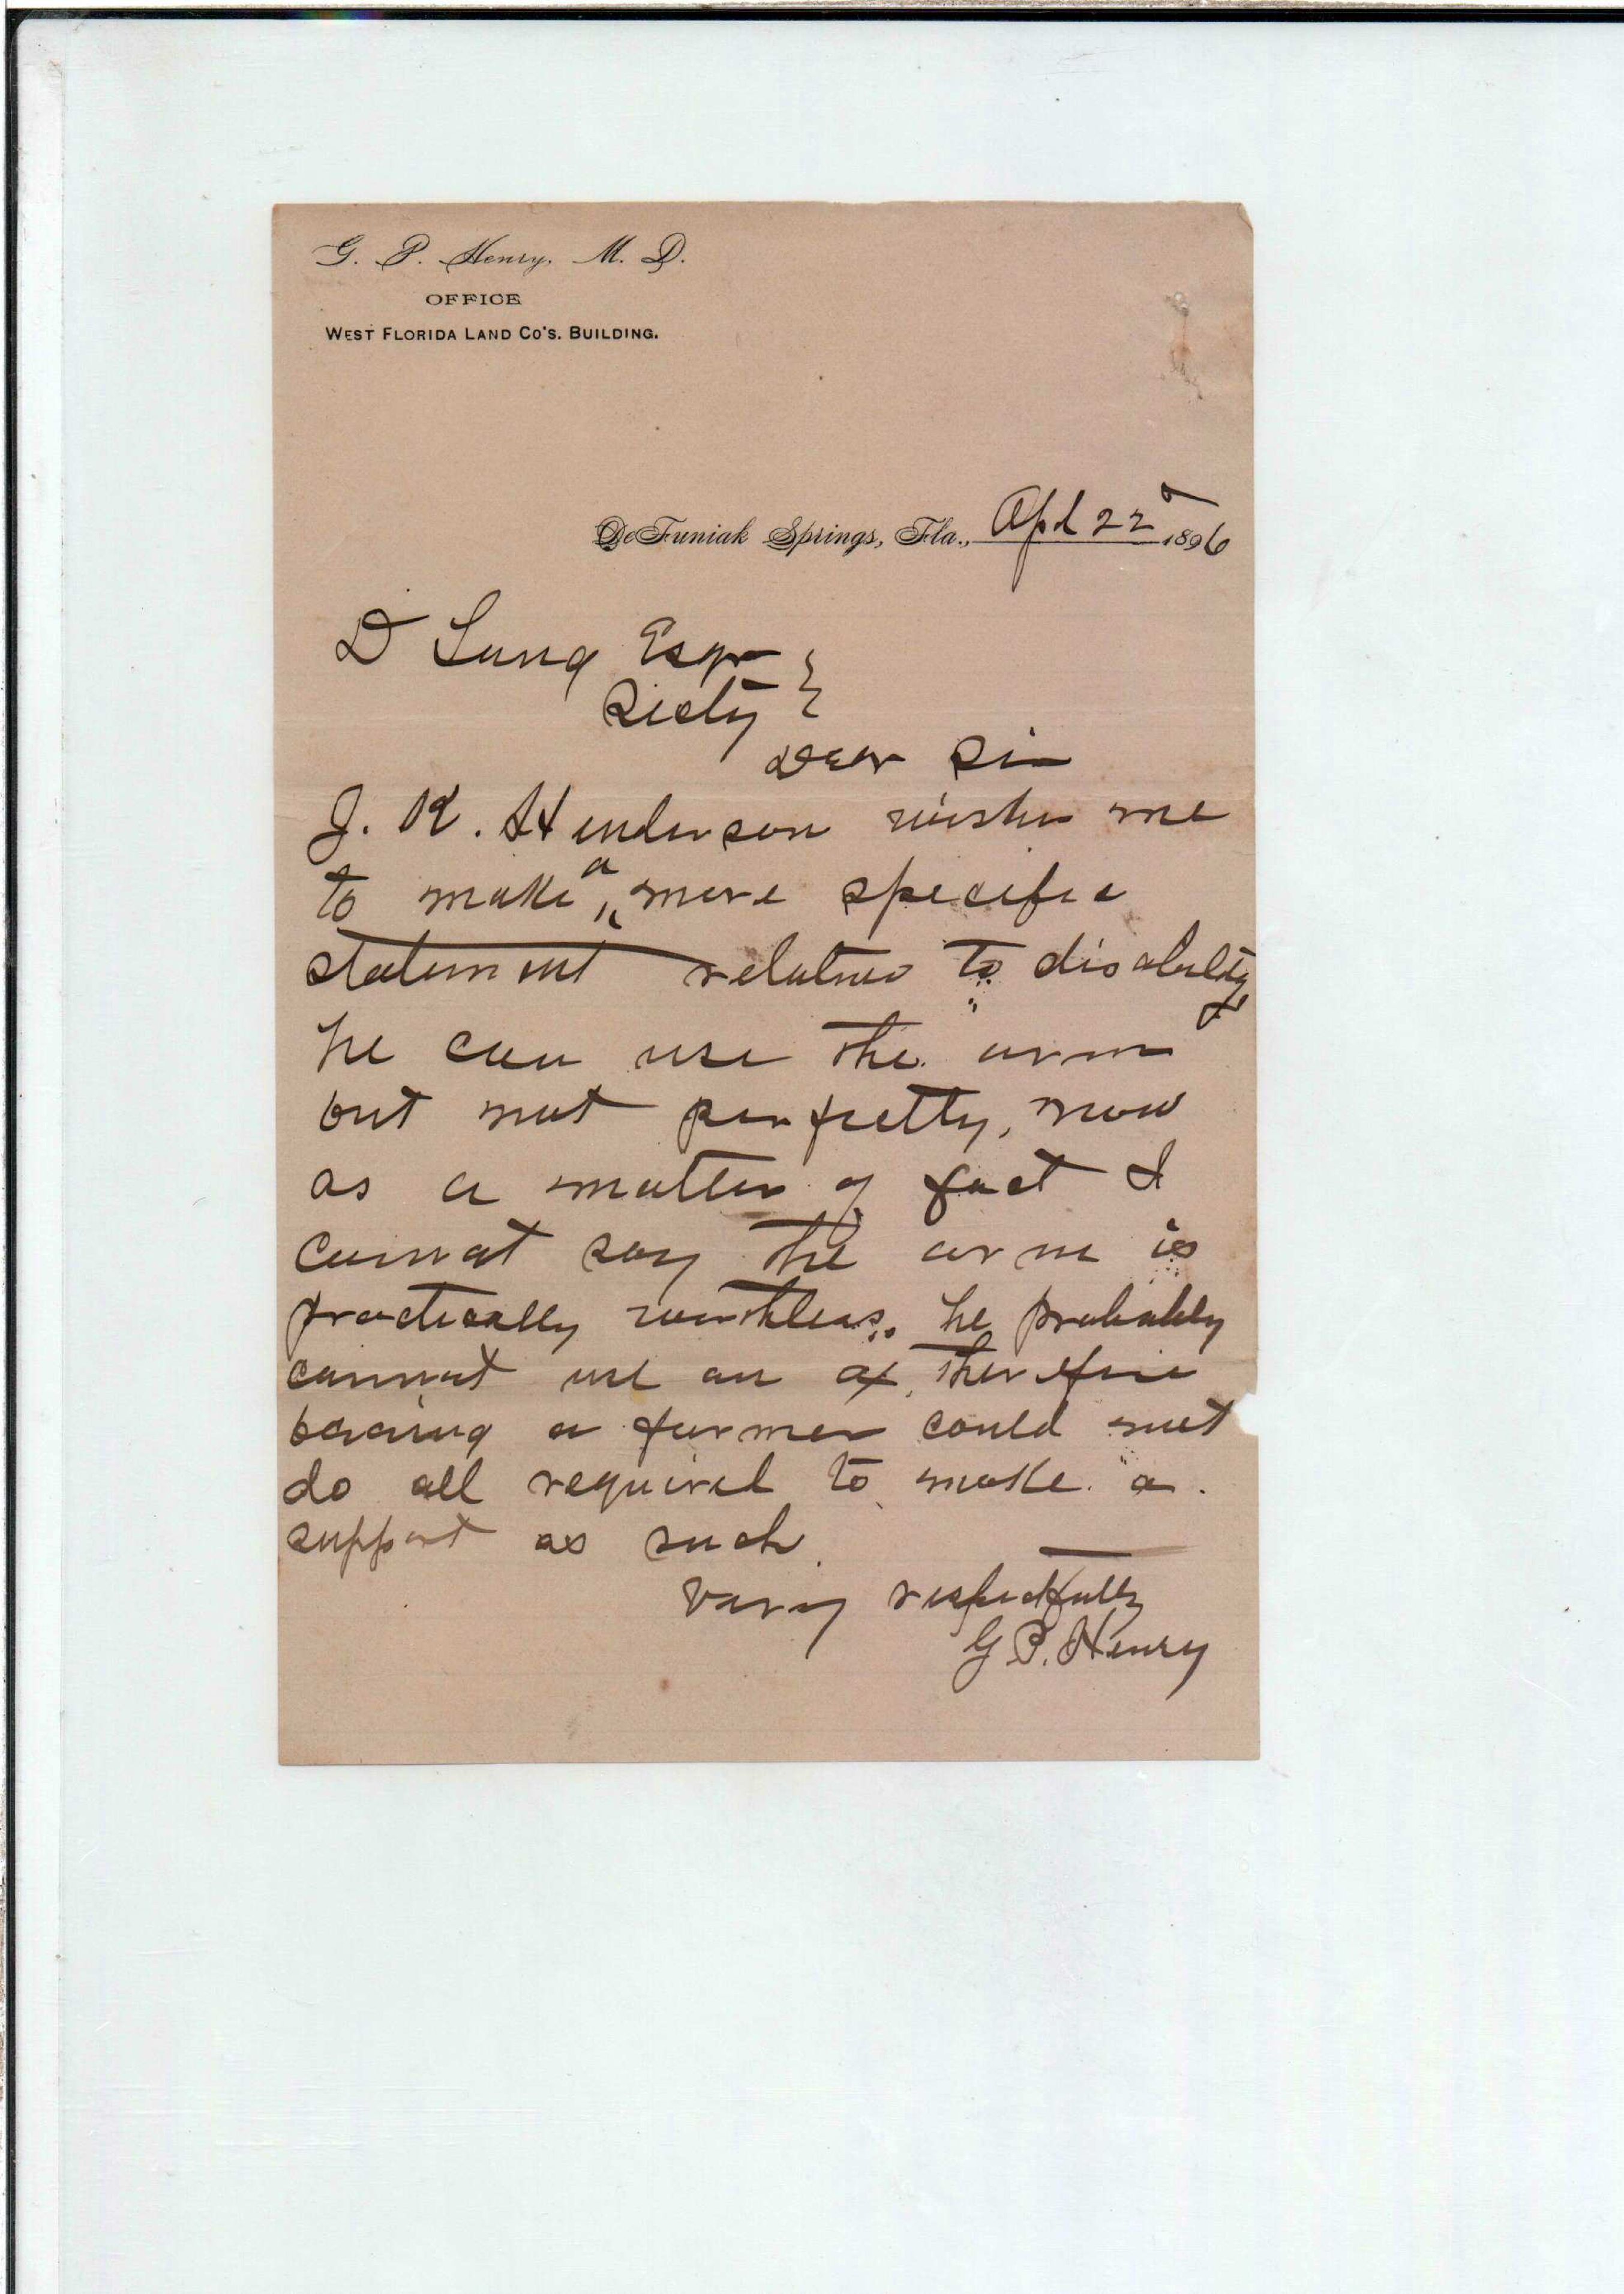 G. P. Henry, M. D.
OFFICE
WEST FLORIDA LAND CO'S. BUILDING.
DeFuniak Springs, Fla., Apl 22 1896
D Lang Esqr }
Secty }
Dear Sir
J. R. Henderson wishes me
to make a more specific
statement relative to disability
he can use the arm
but not perfectly, now
as a matter of fact I
cannot say the arm is
practically worthless. he probably
cannot use an ax, therefore
being a farmer could not
do all required to make a
support as such.
Very respectfully
G P. Henry